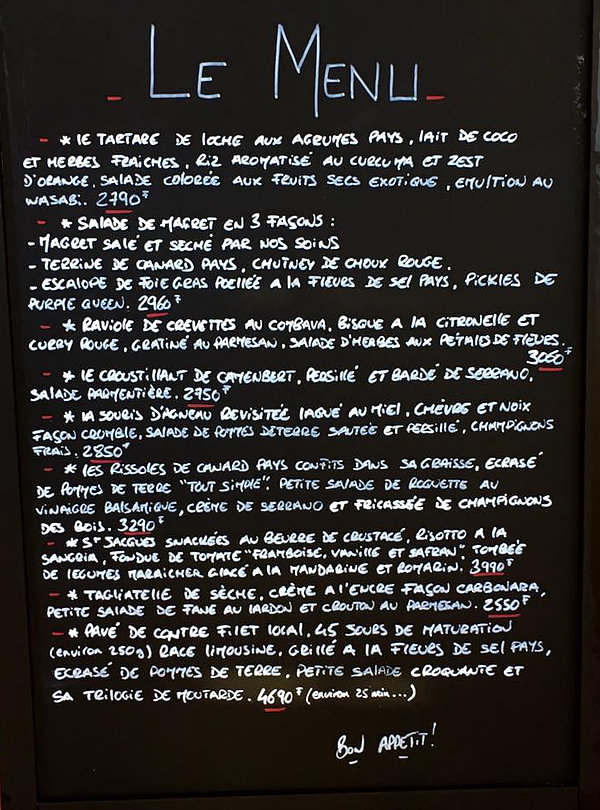 - LE MENU -
- * LE TARTARE DE LOCHE AUX AGRUMES PAYS, LAIT DE COCO
ET HERBES FRAICHES, RIZ AROMATISÉ AU CURCUMA ET ZEST
D'ORANGE, SALADE COLORÉE AUX FRUITS SECS EXOTIQUE, EMULTION AU
WASABI. 2790F
- * SALADE DE MAGRET EN 3 FAÇONS :
- MAGRET SALÉ ET SECHÉ PAR NOS SOINS
- TERRINE DE CANARD PAYS, CHUTNEY DE CHOUX ROUGE.
- ESCALOPE DE FOIE GRAS POELLÉE A LA FLEURS DE SEL PAYS, PICKLES DE
PURPLE QUEEN. 2960F
- * RAVIOLE DE CREVETTES AU COMBAVA, BISQUE A LA CITRONELLE ET
CURRY ROUGE, GRATINÉ AU PARMESAN, SALADE D'HERBES AUX PETALES DE FLEURS.
3060F
- * LE CROUSTILLANT DE CAMENBERT, PERSILLÉ ET BARDÉ DE SERRANO,
SALADE PARMENTIÈRE. 2950F
- * LA SOURIS D'AGNEAU REVISITÉE LAQUÉ AU MIEL, CHÈVRE ET NOIX
FAÇON CRUMBLE, SALADE DE POMMES DE TERRE SAUTÉE ET PERSILLÉ, CHAMPIGNONS
FRAIS. 2850F
- * LES RISSOLES DE CANARD PAYS CONFITS DANS SA GRAISSE, ECRASÉ
DE POMMES DE TERRE "TOUT SIMPLE". PETITE SALADE DE ROQUETTE AU
VINAIGRE BALSAMIQUE, CRÈME DE SERRANO ET FRICASSÉE DE CHAMPIGNONS
DES BOIS. 3290F
- * ST JACQUES SNACKÉES AU BEURRE DE CRUSTACÉ, RISOTTO A LA
SANGRIA, FONDUE DE TOMATE "FRAMBOISE, VANILLE ET SAFRAN", TOMBÉE
DE LEGUMES MARAICHER GLACÉ A LA MANDARINE ET ROMARIN. 3990F
- * TAGLIATELLE DE SÈCHE, CRÈME A L'ENCRE FAÇON CARBONARA,
PETITE SALADE DE FANE AU LARDON ET CROUTON AU PARMESAN. 2550F
- * PAVÉ DE CONTRE FILET LOCAL, 45 JOURS DE MATURATION
(environ 250g) RACE LIMOUSINE, GRILLÉ A LA FLEURS DE SEL PAYS,
ECRASÉ DE POMMES DE TERRE, PETITE SALADE CROQUANTE ET
SA TRILOGIE DE MOUTARDE. 4690F (environ 25 min...)
BON APPETIT!